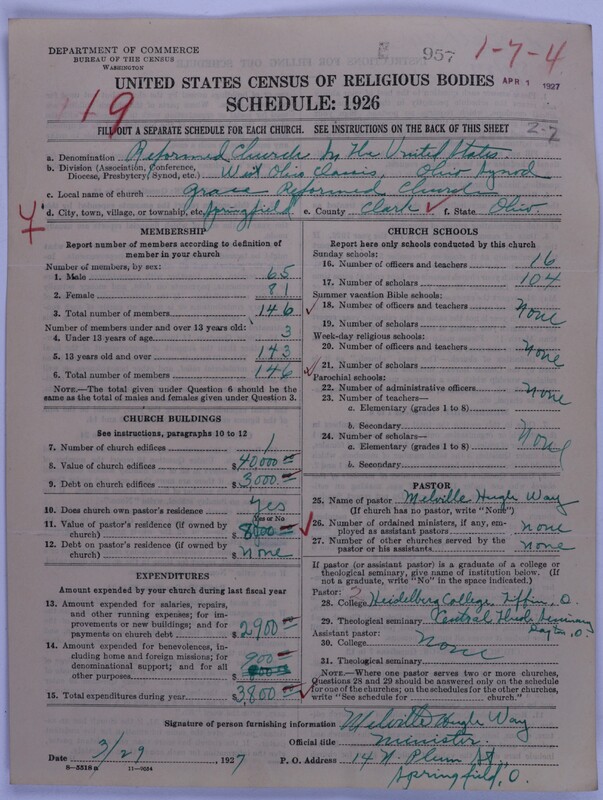 DEPARTMENT OF COMMERCE
BUREAU OF THE CENSUS
WASHINGTON
E 957 1-7-4
UNITED STATES CENSUS OF RELIGIOUS BODIES APR 1 1927
SCHEDULE: 1926
19
FILL OUT A SEPARATE SCHEDULE FOR EACH CHURCH. SEE INSTRUCTIONS ON THE BACK OF THIS SHEET
2-7
a. Denomination Reformed Church in The United States
b. Division (Association, Conference, Diocese, Presbytery, Synod, etc.) West Ohio Classis, Ohio Synod
c. Local name of church Grace Reformed Church
d. City, town, village, or township, etc. Springfield e. County Clark ✓ f. State Ohio.
MEMBERSHIP
Report number of members according to definition of member in your church
Number of members, by sex:
1. Male 65
2. Female 81
3. Total number of members 146
Number of members under and over 13 years old:
4. Under 13 years of age 3
5. 13 years old and over 143
6. Total number of members 146
NOTE.—The total given under Question 6 should be the same as the total of males and females given under Question 3.
CHURCH BUILDINGS
See instructions, paragraphs 10 to 12
7. Number of church edifices 1
8. Value of church edifices $40000
9. Debt on church edifices $3000
10. Does church own pastor's residence? yes
Yes or No
11. Value of pastor's residence (if owned by church) $8000
12. Debt on pastor's residence (if owned by church) $none
EXPENDITURES
Amount expended by your church during last fiscal year
13. Amount expended for salaries, repairs, and other running expenses; for improvements or new buildings; and for payments on church debt $2900
14. Amount expended for benevolences, including home and foreign missions; for denominational support; and for all other purposes $900
15. Total expenditures during year $3,800
CHURCH SCHOOLS
Report here only schools conducted by this church
Sunday schools:
16. Number of officers and teachers 16
17. Number of scholars 104
Summer vacation Bible schools:
18. Number of officers and teachers None
19. Number of scholars
Week-day religious schools:
20. Number of officers and teachers None
21. Number of scholars
Parochial schools:
22. Number of administrative officers None
23. Number of teachers—
a. Elementary (grades 1 to 8)
b. Secondary
24. Number of scholars— None
a. Elementary (grades 1 to 8)
b. Secondary
PASTOR
25. Name of pastor Melville Hugh Way
(If church has no pastor, write "None")
26. Number of ordained ministers, if any, employed as assistant pastors none
27. Number of other churches served by the pastor or his assistants none
If pastor (or assistant pastor) is a graduate of a college or theological seminary, give name of institution below. (If not a graduate, write "No" in the space indicated.)
Pastor:
28. College Heidelberg College, Tiffin, O.
29. Theological seminary Central Theolo Seminary Dayton, O.
Assistant pastor:
30. College None
31. Theological seminary
NOTE.—Where one pastor serves two or more churches, Questions 28 and 29 should be answered only on the schedule for one of the churches; on the schedules for the other churches, write "See schedule for church."
Signature of person furnishing information Melville Hugh Way
Official title Minister.
Date 3/29 1927 P. O. Address 14 N. Plum St.,
8—5518a 11—9034 Springfield, O.